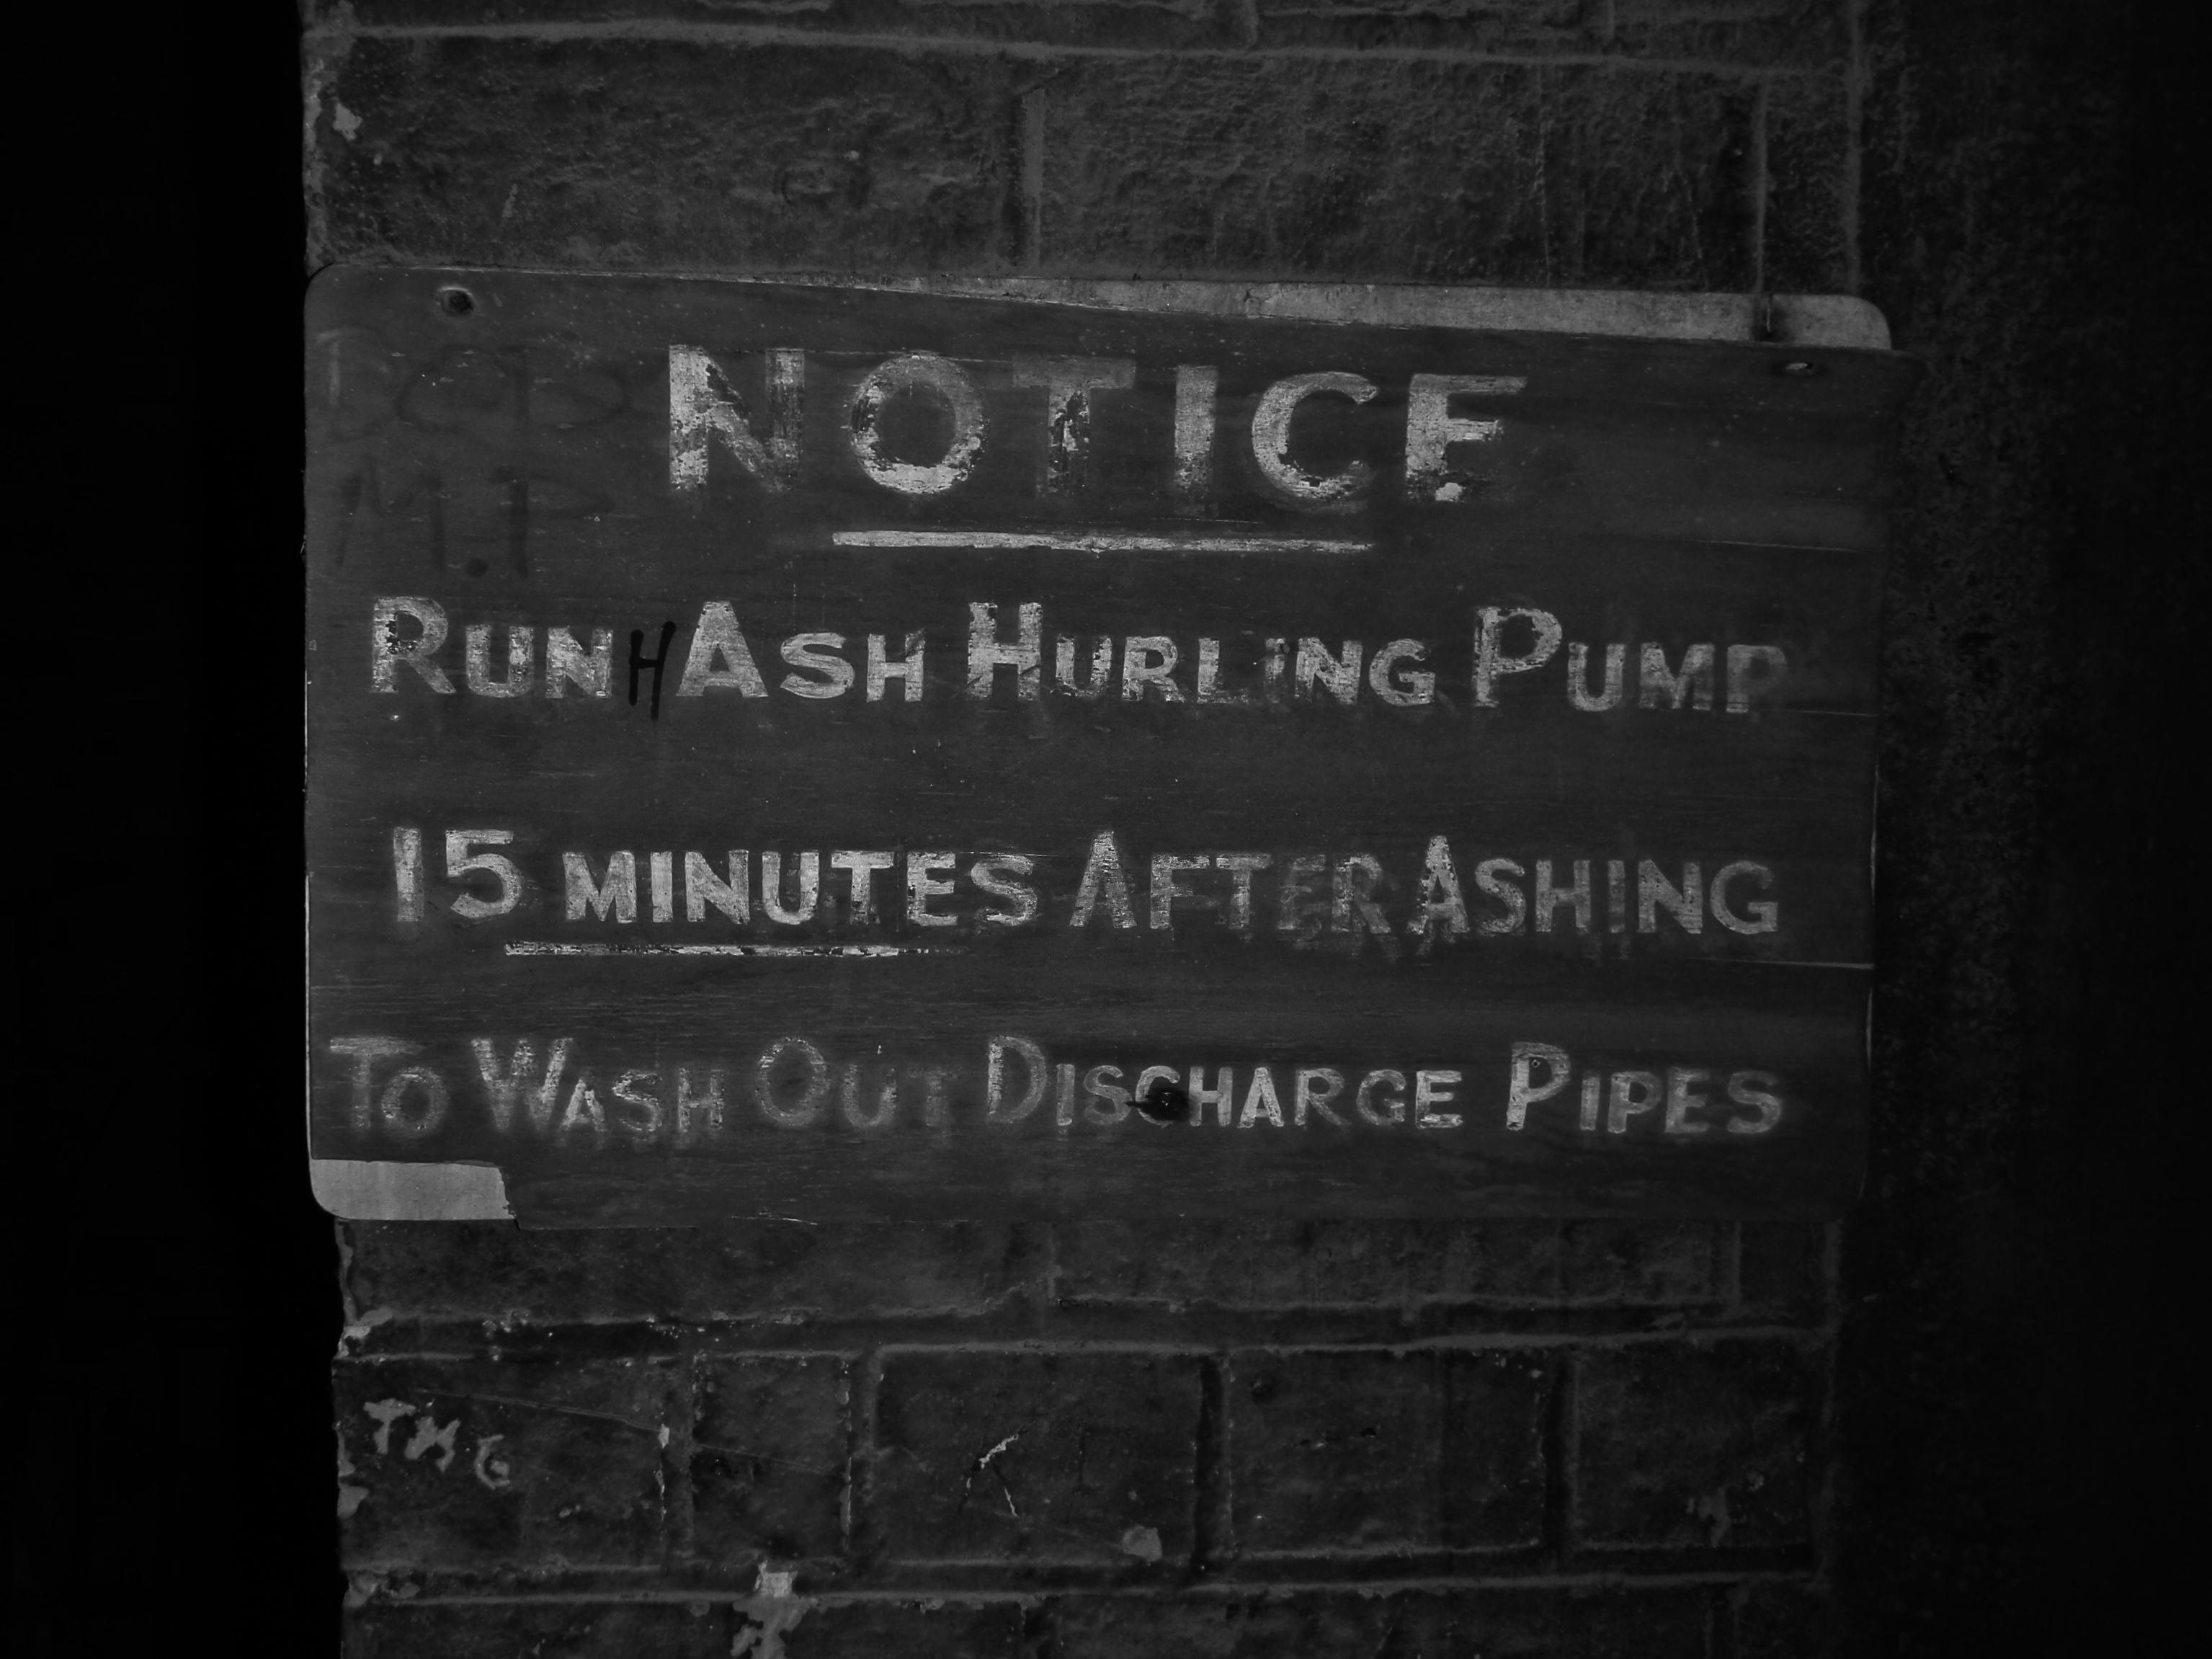 NOTICE
M.P
RUN H ASH HURLING PUMP
15 MINUTES AFTER ASHING
TO WASH OUT DISCHARGE PIPES
TMG
K